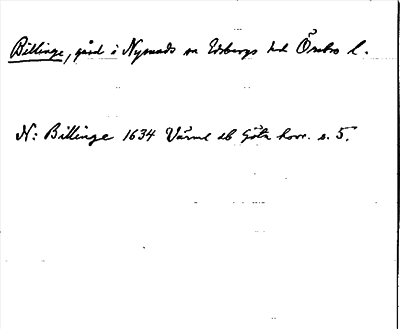 Billinge, gård i Nysunds sn Edsbergs hd Örebro l.
N: Billinge 1634 Värml db Göta hovr. s. 5.